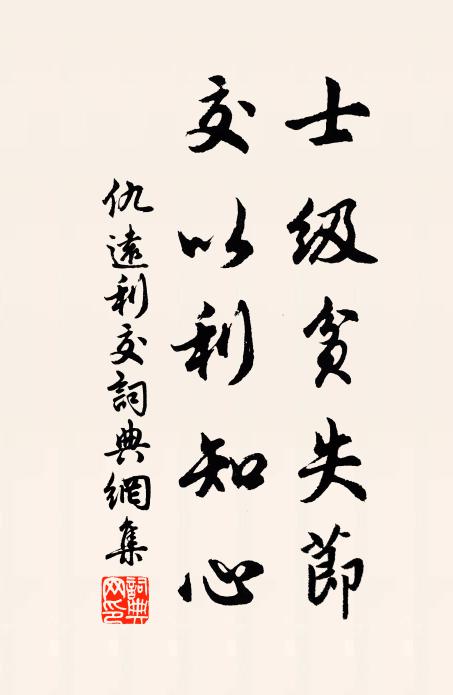 士級貧失節
交以利知心
仇遠利交詞典網集
詞典
网印